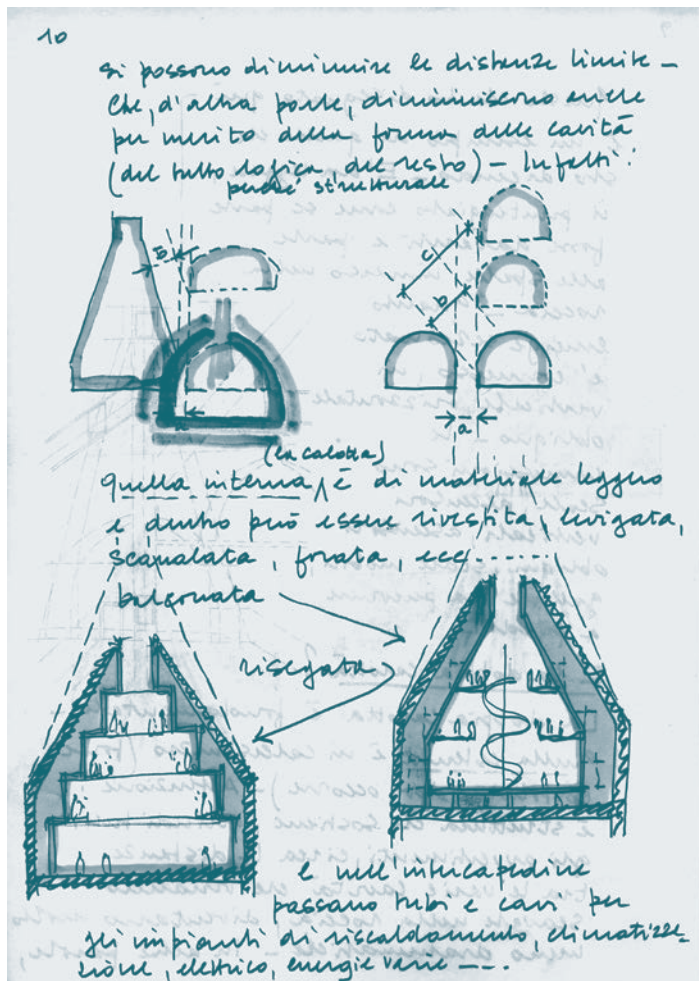 10
si possono diminuire le distanze limite –
che, d'altra parte, diminuiscono anche
per merito della forma delle cavità
(del tutto logica del resto) – Infatti:
perché strutturale
b
c
b
a
a
(la calotta)
quella interna, è di materiale leggero
e dentro può essere rivestita, levigata,
scanalata, forata, ecc -----
balconata
risegata
e nell'intercapedine
passano tubi e cavi per
gli impianti di riscaldamento, climatizza-
zione, elettrico, energie varie –...